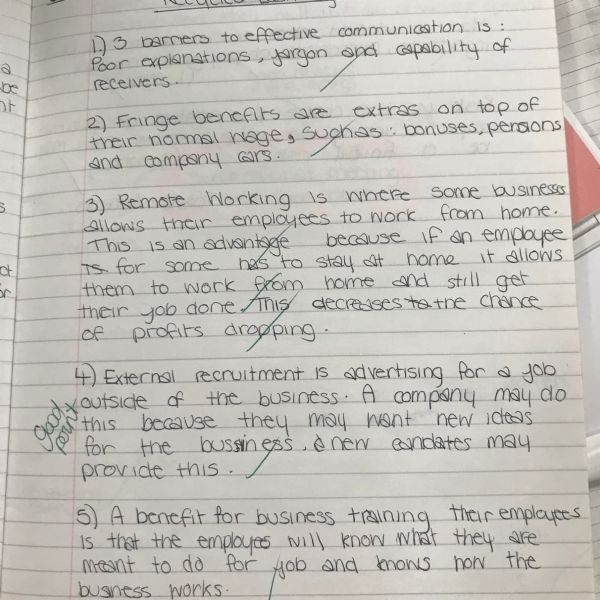 1) 3 barriers to effective communication is :
Poor explanations, jargon and capability of
receivers.
2) Fringe benefits are extras on top of
their normal wage, such as : bonuses, pensions
and company cars.
3) Remote Working is where some businesses
allows their employees to work from home.
This is an advantage because if an employee
is for some has to stay at home it allows
them to work from home and still get
their job done. This decreases to the chance
of profits dropping.
4) External recruitment is advertising for a job
outside of the business. A company may do
this because they may want new ideas
for the bussiness, & new candates may
provide this.
good
point
5) A benefit for business training their employees
is that the employes will know what they are
meant to do for job and knows how the
business works.